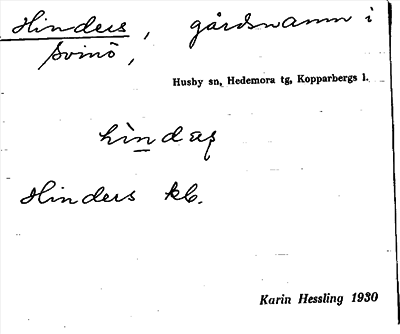 Hinders, gårdsnamn i
Svinö,
Husby sn, Hedemora tg, Kopparbergs l.
Hinders kb.
Karin Hessling 1930